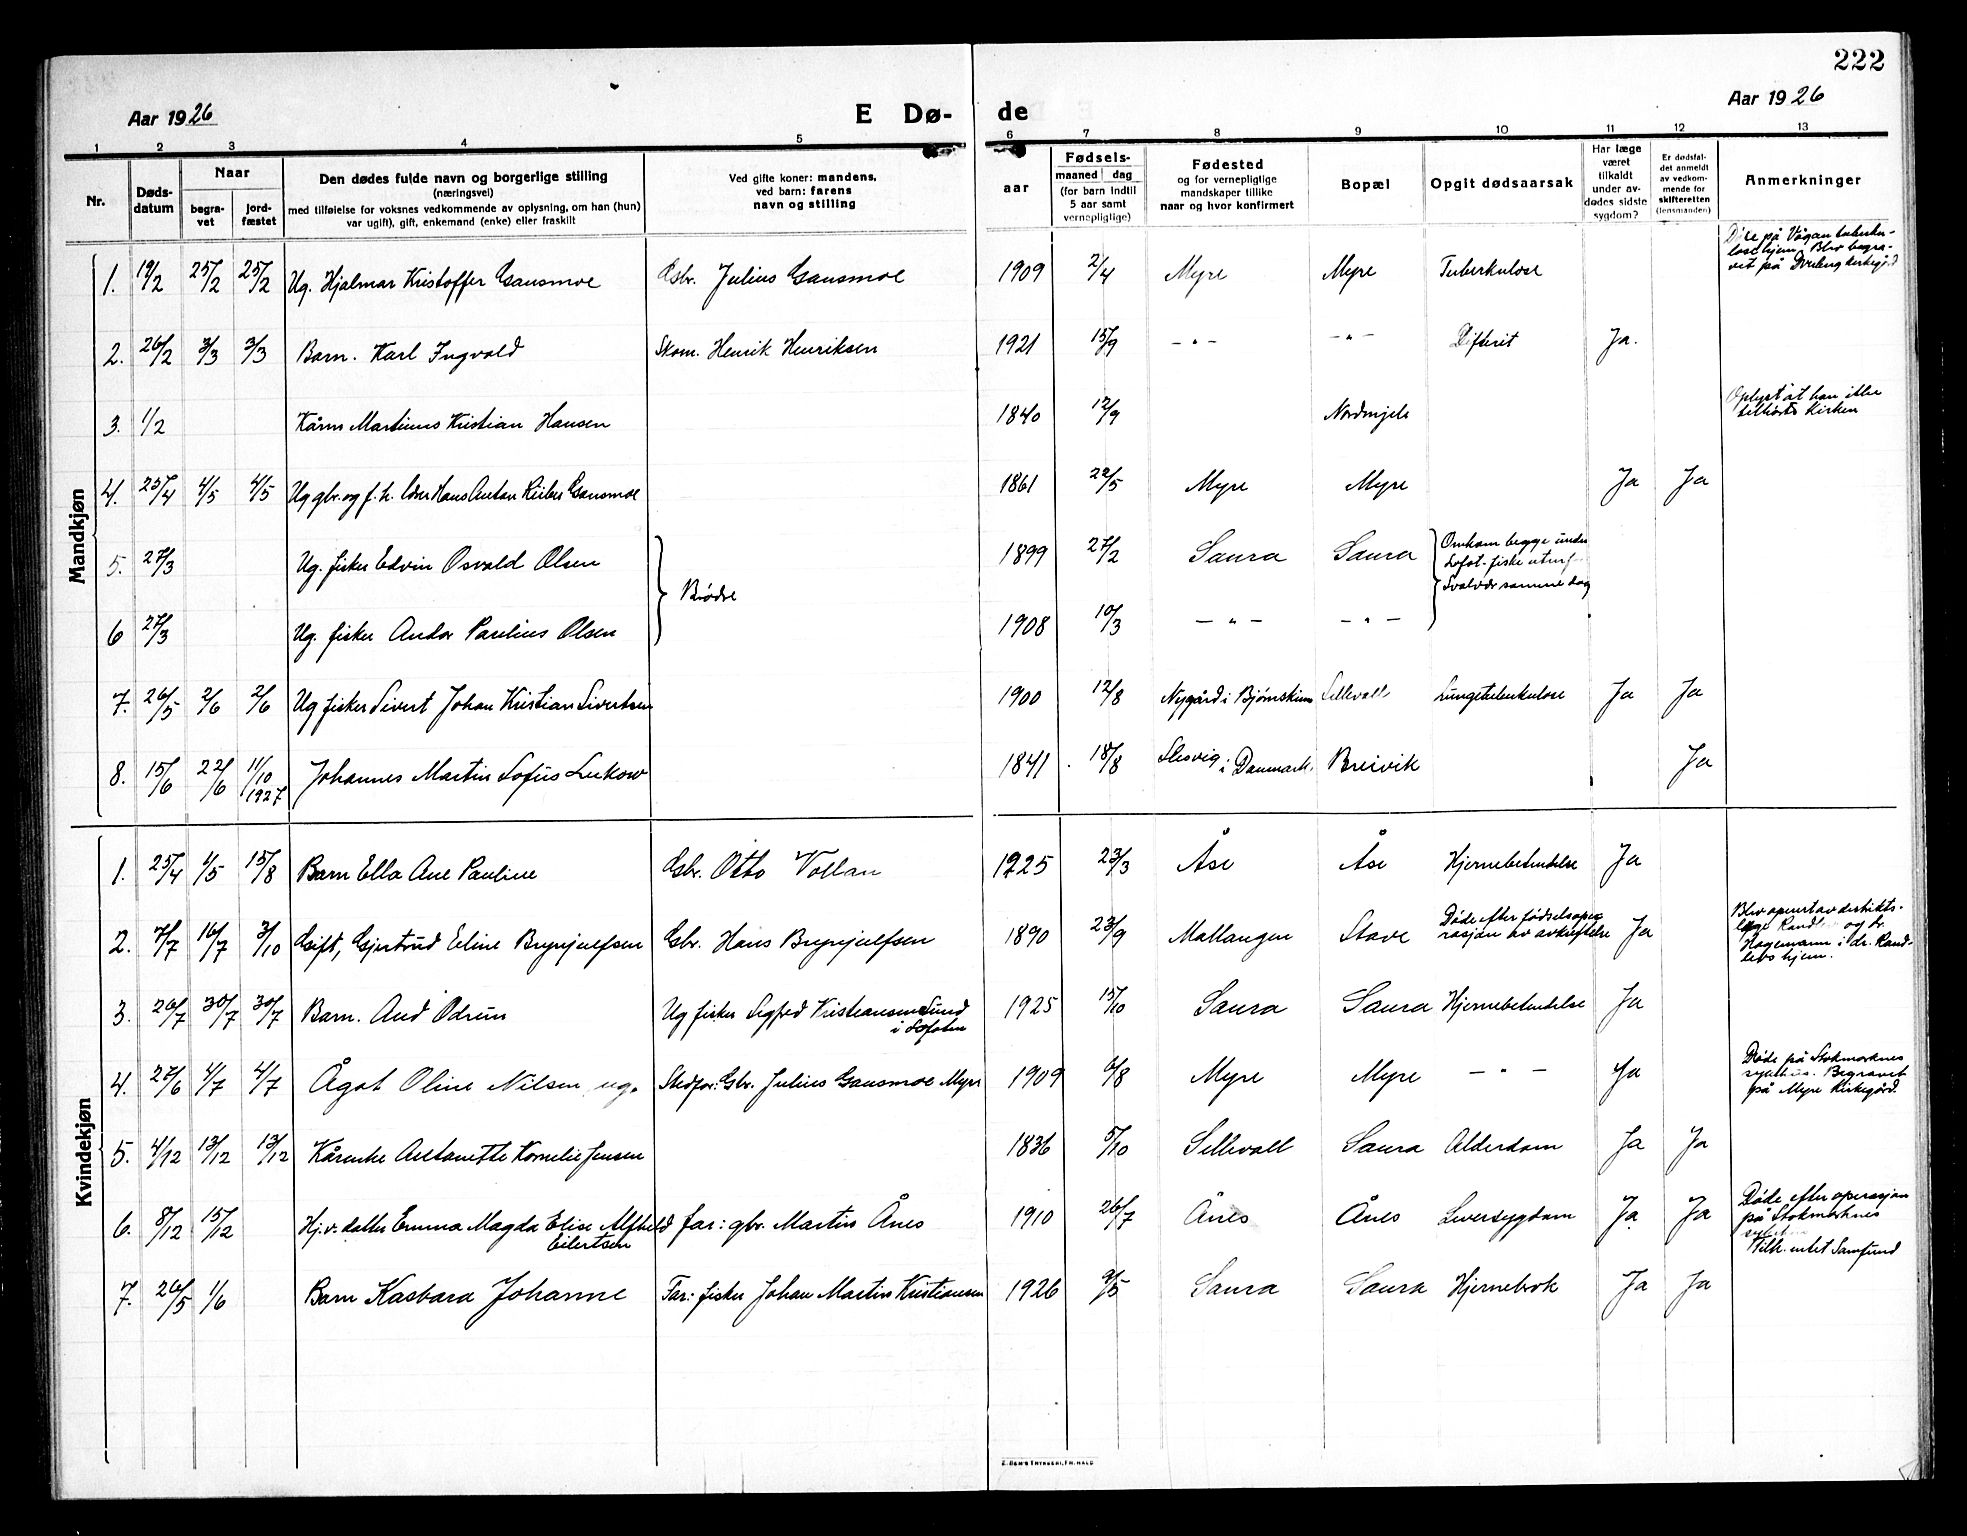 222
Aar 1926
E Dø-
de
Aar 1926
1 2 3 4 5 6 7 8 9 10 11 12 13
Nr.
Døds-
datum
Naar
begra-
vet
jord-
fæstet
Den dødes fulde navn og borgerlige stilling
(næringsvei)
med tilføielse for voksnes vedkommende av oplysning, om han (hun)
var ugift), gift, enkemand (enke) eller fraskilt
Ved gifte koner: mandens,
ved barn: farens
navn og stilling
aar
Fødsels-
maaned dag
(for barn indtil
5 aar samt
vernepligtige)
Fødested
og for vernepligtige
mandskaper tillike
naar og hvor konfirmert
Bopæl
Opgit dødsaarsak
Har læge
været
tilkaldt
under av-
dødes sidste
sygdom?
Er dødsfal-
det anmeldt
av vedkom-
mende for
skifteretten
(lensmanden)
Anmerkninger
Mandkjøn
1. 19/2 25/2 25/2 Ug. Hjalmar Kristoffer Gausmoe Gbr. Julius Gausmoe 1909 2/4 Myre Myre Tuberkulose
Døde på Vågan tuberku-
losehjem. Blev begra-
vet på Dverberg kirkegård
2. 26/2 3/3 3/3 Barn. Karl Ingvald Skom. Henrik Henriksen 1921 15/9 - " - - " - Difterit Ja.
3. 1/2 Kårm Martinus Kristian Hansen 1840 12/9 Nordmjele
Oplyst at han ikke
tilhørte Kirken
4. 25/4 4/5 4/5 Ug gbr. og f. h. lærer Hans Anton Gausmoe 1861 22/5 Myre Myre Ja Ja
5. 27/3 Ug. fisker Edvin Osvald Olsen 1899 27/2 Saura Saura
Brødre
Omkom begge under
Lofot-fiske
Svolvær samme dag
6 27/3 Ug. fisker Andor Paulius Olsen 1908 10/3 - " - - " -
7. 26/5 2/6 2/6 Ug fisker Sivert Johan Kristian Sivertsen 1900 12/8 Nygård i Bjørnskinn Sellevoll Lungetuberkulose Ja Ja
8. 15/6 22/6 11/10 1927 Johannes Martin Sofus Lukow 1841 18/8 Slesvig i Danmark. Breivik Ja
Kvindekjøn
1. 25/4 1/5 15/8 Barn Ella Ane Pauline Gbr. Otto Vollan 1925 23/3 Åse Åse Hjernebetendelse Ja
2. 7/7 16/7 3/10 Gift, Gjertrud Eline Brynjulfsen Gbr. Hans Brynjulfsen 1890 23/9 Mallangen Stave
Døde efter fødselsope-
rasjon av avkreftelse Ja
Blev operert av distrikts-
læge Rand og dr.
Hagemann i dr. Rand-
lebs hjem.
3. 26/7 30/7 30/7 Barn. Aud Odrun Ug fisker Sigfred Kristiansen Sund
i Lofoten
1925 15/10 Saura Saura Hjernebetendelse Ja
4. 27/6 4/7 4/7 Ågot Oline Nilsen ug. Stedfar: Gbr. Julius Gausmoe Myre 1909 6/8 Myre Myre - " - Ja
Døde på Stokmarknes
sykehus. Begravet
på Myre Kirkegård.
5. 4/12 13/12 13/12 Kårenke Antonette Kornelie Jensen 1836 5/10 Sellevoll Saura Alderdom Ja Ja
6. 8/12 15/12 Hj.v. datter Emma Magda Elise Alfhild
Eilertsen
far: gbr. Martin Ånes 1910 26/7 Ånes Ånes Leversygdom Ja Ja
Døde efter operasjon
på Stokmarknes
Tilh. intet Samfund
7. 26/5 1/6 Barn Kasbara Johanne Far: fisker Johan Martin Kristiansen 1926 9/5 Saura Saura Hjernebrok Ja Ja